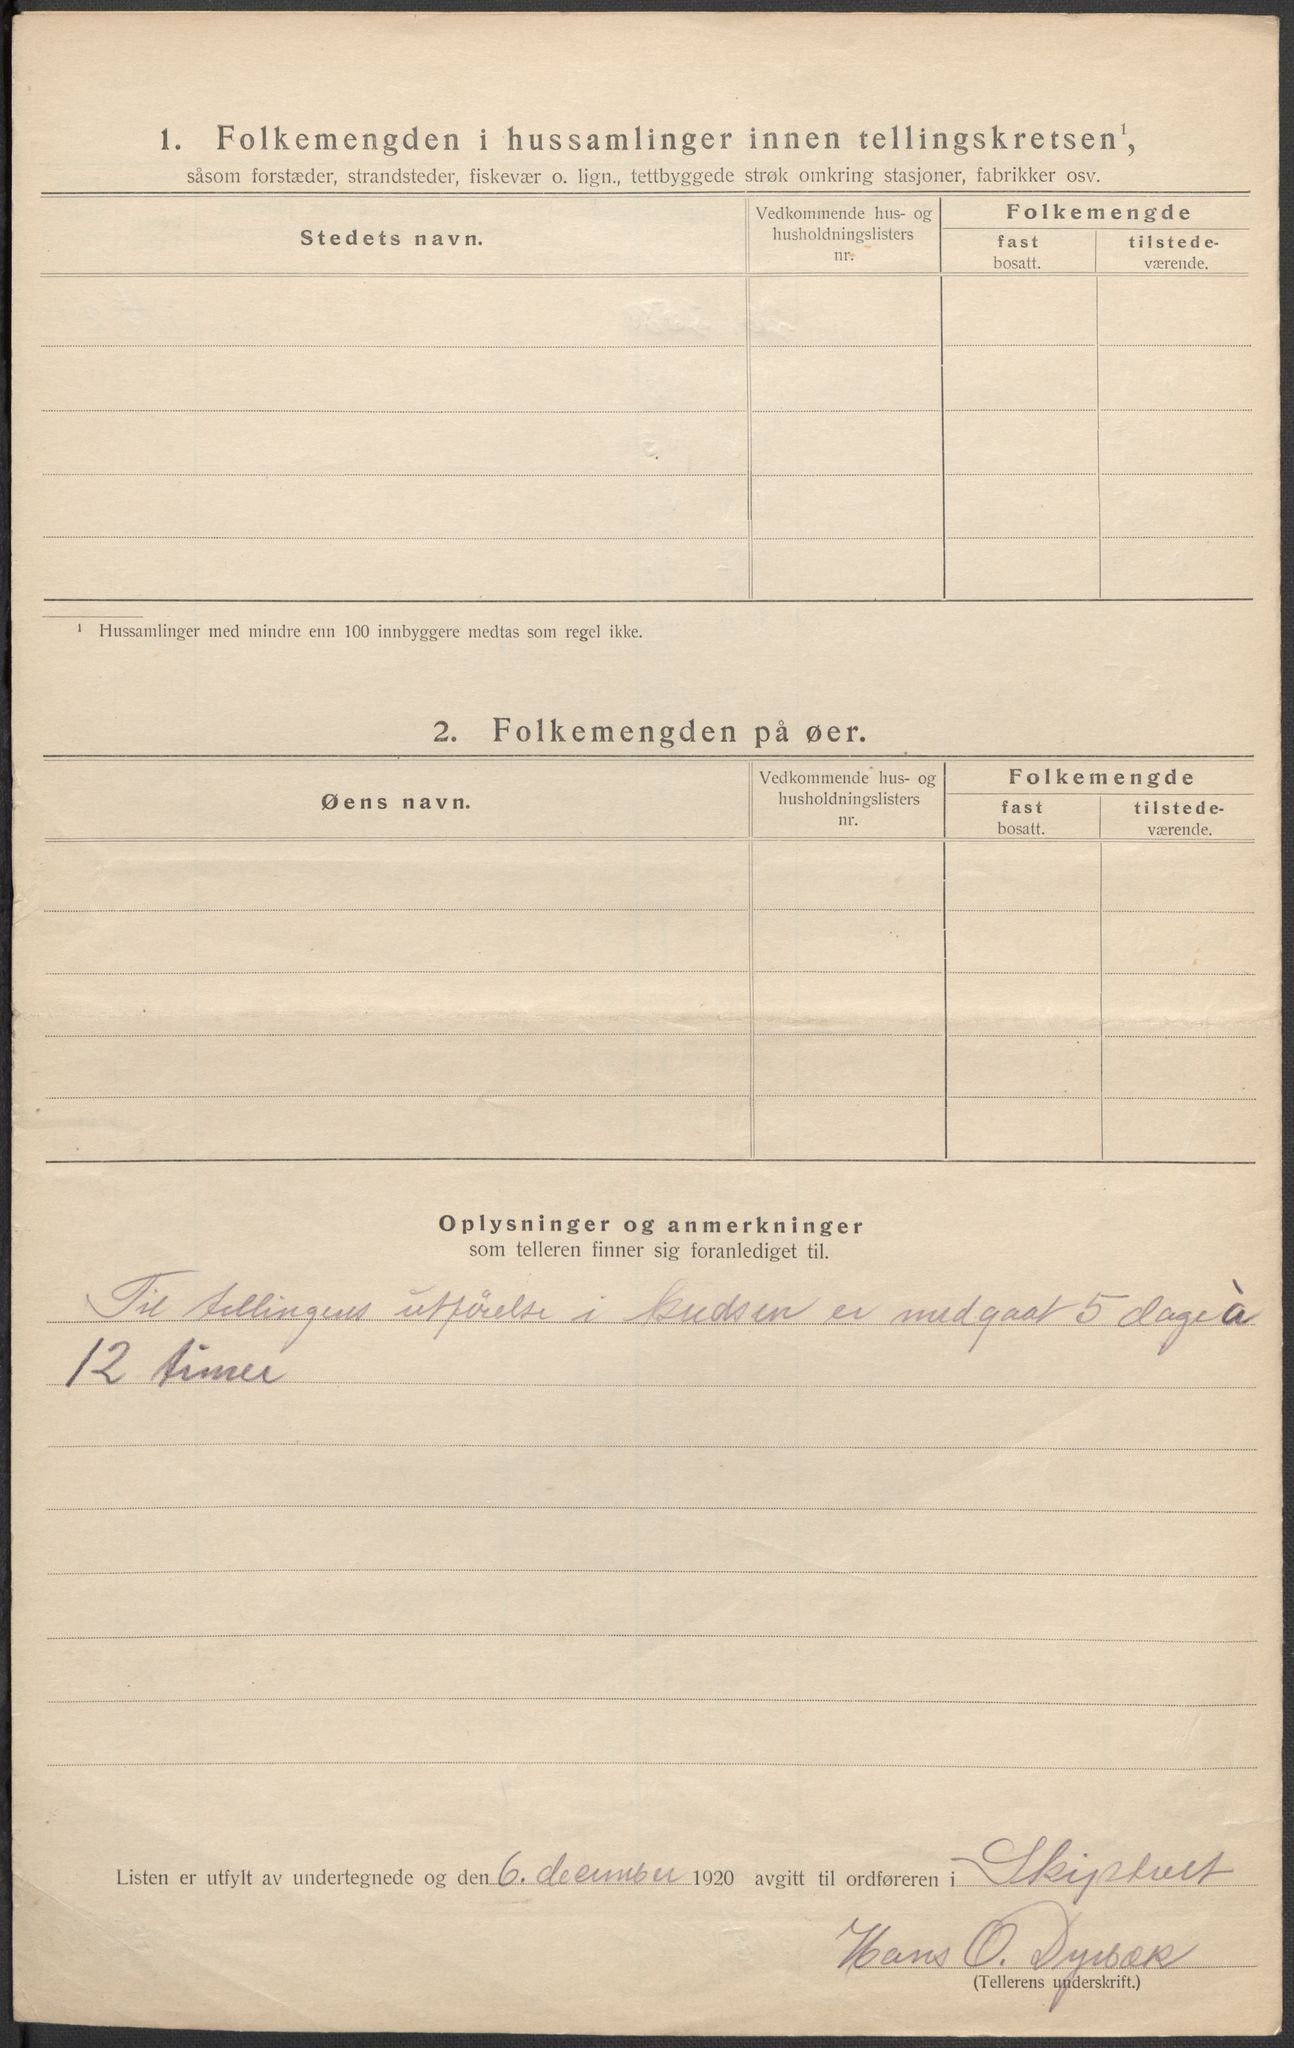 1. Folkemengden i hussamlinger innen tellingskretsen¹,
såsom forstæder, strandsteder, fiskevær o. lign., tettbyggede strøk omkring stasjoner, fabrikker osv.
Stedets navn.
Vedkommende hus- og
husholdningslisters
nr.
Folkemengde
fast
bosatt.
tilstede-
værende.
¹ Hussamlinger med mindre enn 100 innbyggere medtas som regel ikke.
2. Folkemengden på øer.
Øens navn.
Vedkommende hus- og
husholdningslisters
nr.
Folkemengde
fast
bosatt.
tilstede-
værende.
Oplysninger og anmerkninger
som telleren finner sig foranlediget til.
Til tellingens utførelse i er medgaat 5 dage à
12 timer
Listen er utfylt av undertegnede og den 6. december 1920 avgitt til ordføreren i Skiptvet
Hans O. Dyrbæk
(Tellerens underskrift.)